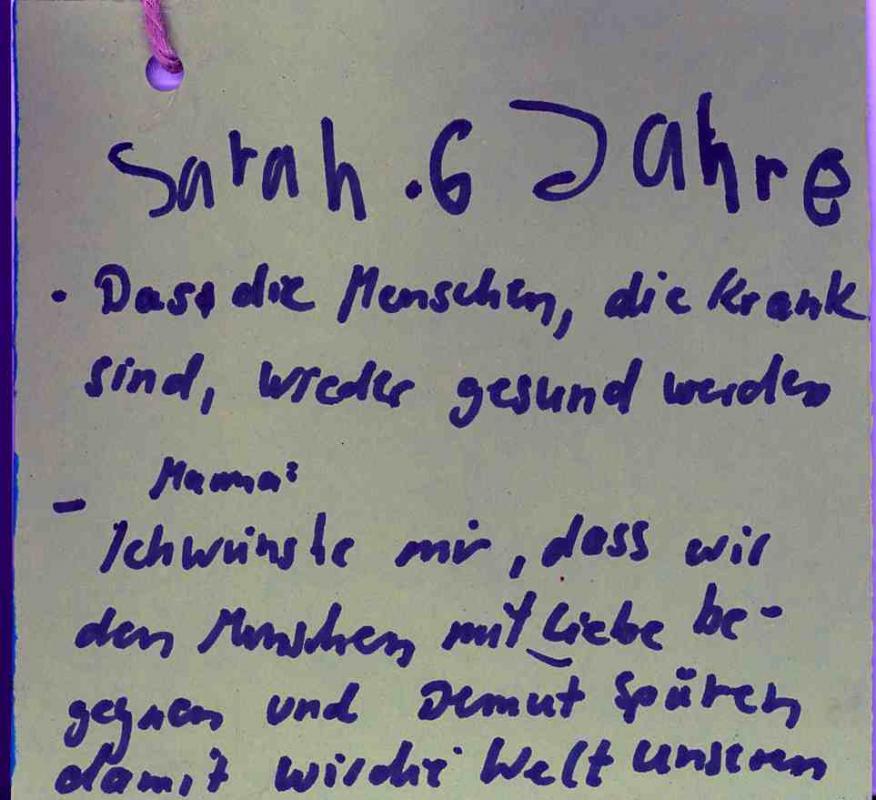 Sarah . 6 Jahre
· Dass die Menschen, die krank
sind, wieder gesund werden
Mama:
- Ich wünsche mir, dass wir
den Menschen mit Liebe be-
gegnen und Demut spüren
damit wir die Welt unseren